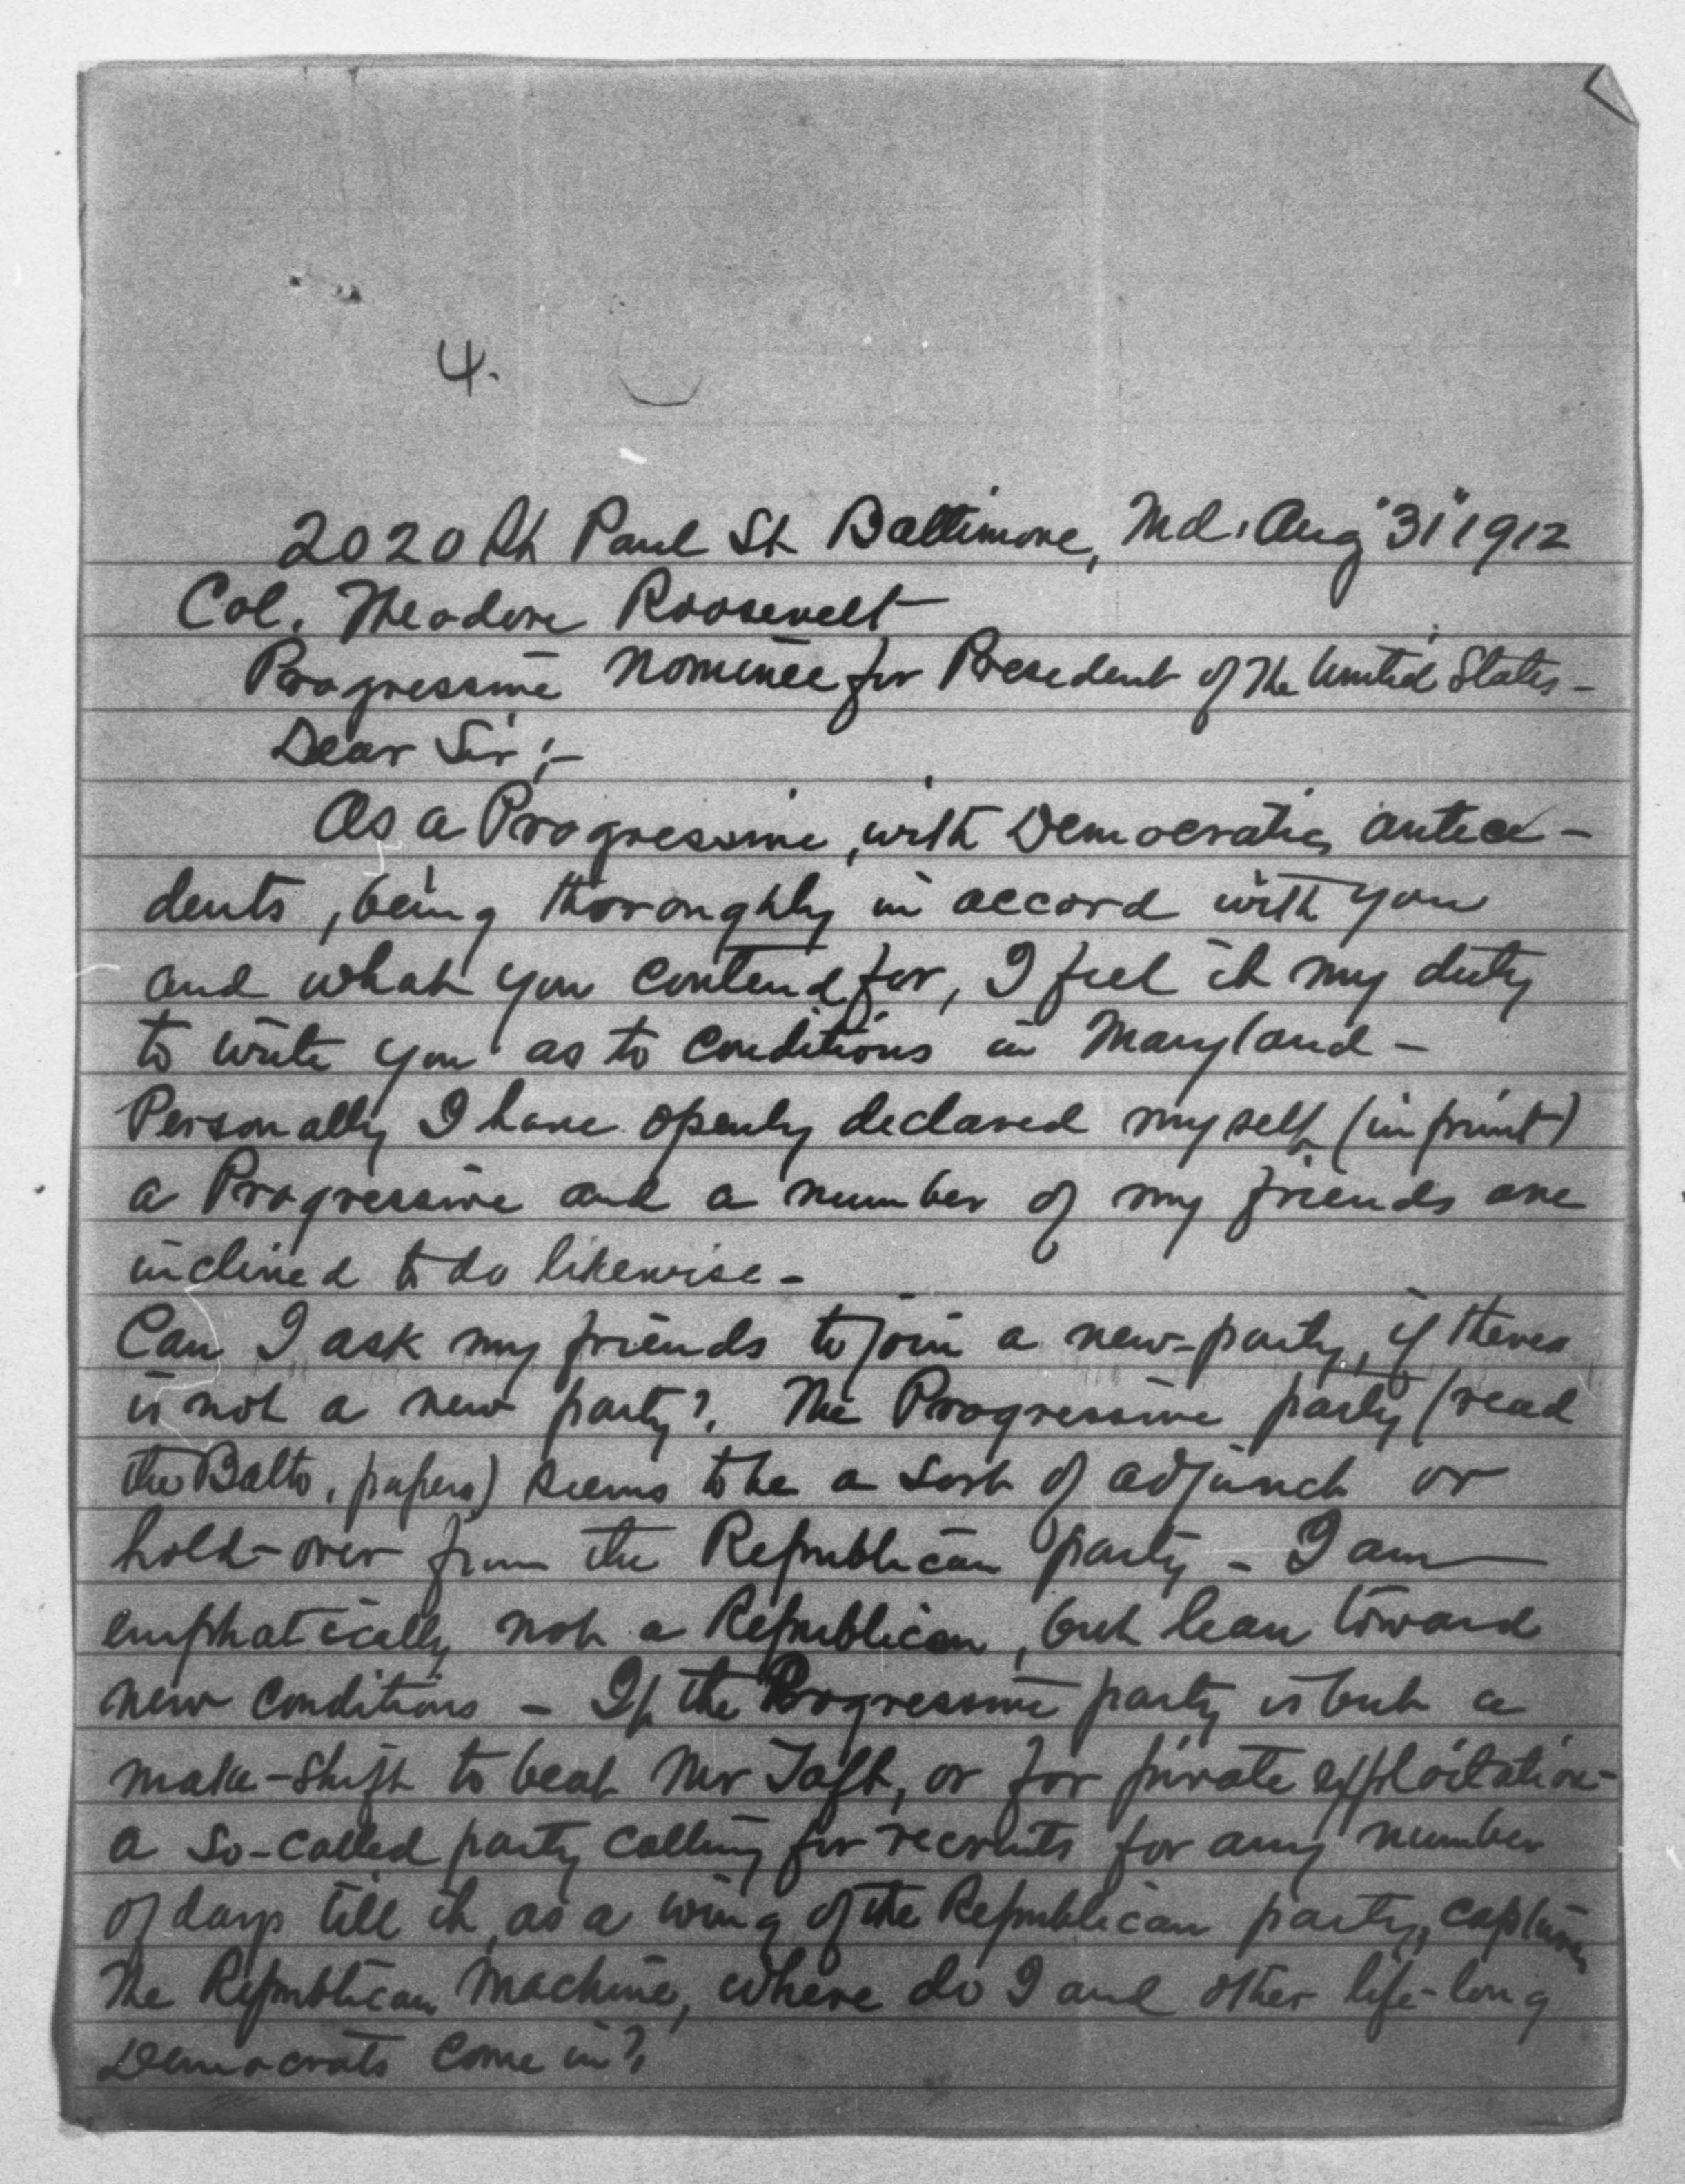 4.
2020 St Paul St Baltimore, Md. Aug "31" 1912
Col. Theodore Roosevelt
Progressive Nominee for President of the United States -
Dear Sir;-
As a Progressive, with Democratic antece-
dents, being thoroughly in accord with you
and what you contend for, I feel it my duty
to write you as to conditions in Maryland -
Personally I have openly declared myself (in print)
a Progressive and a number of my friends are
inclined to do likewise -
Can I ask my friends to join a new-party, if there
is not a new party?. The Progressive party (read
the Balto. papers) seems to be a sort of adjunct or
hold-over from the Republican party - I am
emphatically not a Republican, but lean toward
new conditions - If the Progressive party is but a
make-shift to beat Mr Taft, or for private exploitation-
a so-called party calling for recruits for any number
of days till it, as a wing of the Republican party, captures
the Republican machine, where do I and other life-long
Democrats come in?.